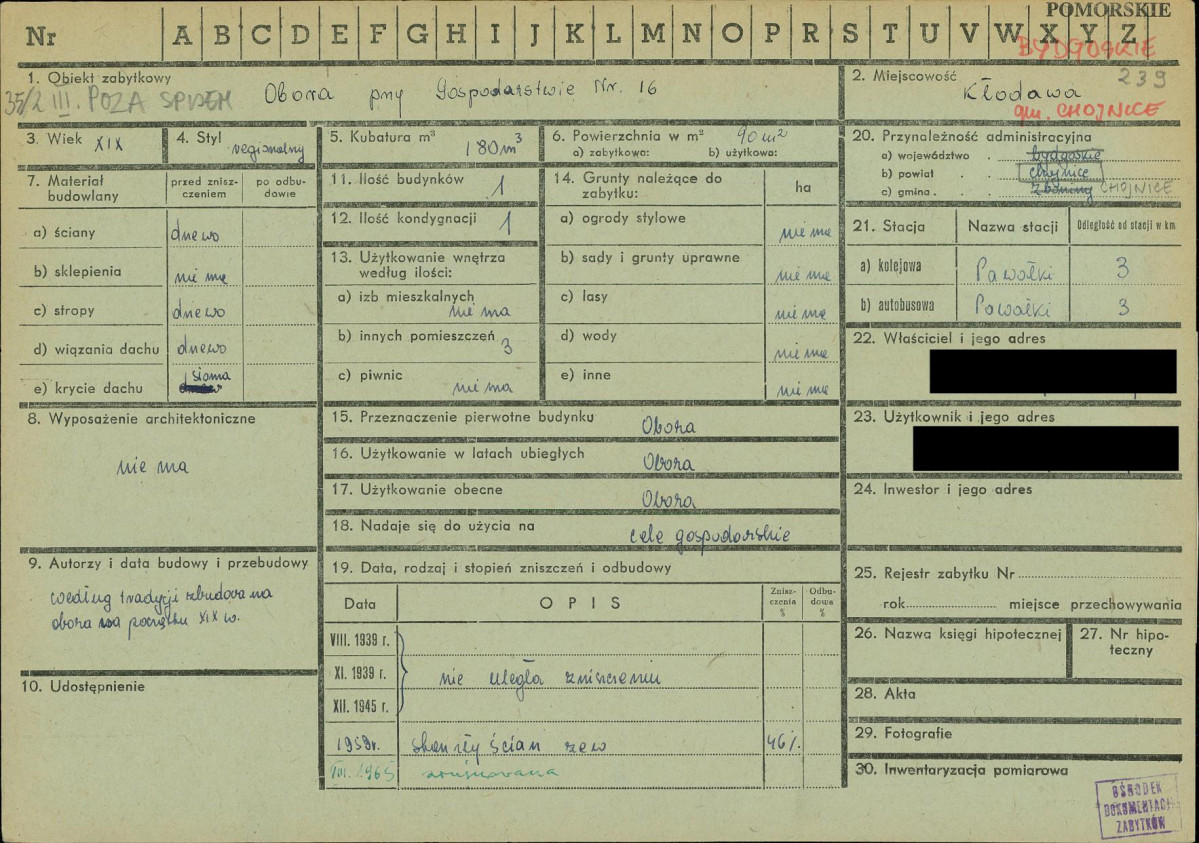 POMORSKIE
Nr A B C D E F G H I J K L M N O P R S T U V W X Y Z
BYDGOSKIE
1. Obiekt zabytkowy
35/2 III. POZA SPISEM Obora przy Gospodarstwie Nr. 16
2. Miejscowość 239
Kłodawa
gm. CHOJNICE
3. Wiek XIX
4. Styl regionalny
5. Kubatura m³ 180 m³
6. Powierzchnia w m² 90 m²
a) zabytkowa: b) użytkowa:
7. Materiał budowlany
przed zniszczeniem
po odbudowie
a) ściany drewo
b) sklepienia nie ma
c) stropy drewo
d) wiązania dachu drewo
e) krycie dachu słoma
8. Wyposażenie architektoniczne
nie ma
9. Autorzy i data budowy i przebudowy
według tradycji zbudowana
obora na początku XIX w.
10. Udostępnienie
11. Ilość budynków 1
12. Ilość kondygnacji 1
13. Użytkowanie wnętrza
według ilości:
a) izb mieszkalnych
nie ma
b) innych pomieszczeń 3
c) piwnic nie ma
14. Grunty należące do
zabytku:
ha
a) ogrody stylowe nie ma
b) sady i grunty uprawne nie ma
c) lasy nie ma
d) wody nie ma
e) inne nie ma
15. Przeznaczenie pierwotne budynku Obora
16. Użytkowanie w latach ubiegłych Obora
17. Użytkowanie obecne Obora
18. Nadaje się do użycia na cele gospodarskie
19. Data, rodzaj i stopień zniszczeń i odbudowy
Data OPIS Zniszczenia % Odbudowa %
VIII. 1939 r.
XI. 1939 r. nie uległa zniszczeniu
XII. 1945 r.
1959r. 46%
VIII. 1965 zrujnowana
20. Przynależność administracyjna
a) województwo . bydgoskie
b) powiat . . chojnice
c) gmina . . CHOJNICE
21. Stacja Nazwa stacji Odległość od stacji w km
a) kolejowa Pawałki 3
b) autobusowa Pawałki 3
22. Właściciel i jego adres
23. Użytkownik i jego adres
24. Inwestor i jego adres
25. Rejestr zabytku Nr
rok miejsce przechowywania
26. Nazwa księgi hipotecznej
27. Nr hipoteczny
28. Akta
29. Fotografie
30. Inwentaryzacja pomiarowa
OŚRODEK
DOKUMENTACJI
ZABYTKÓW